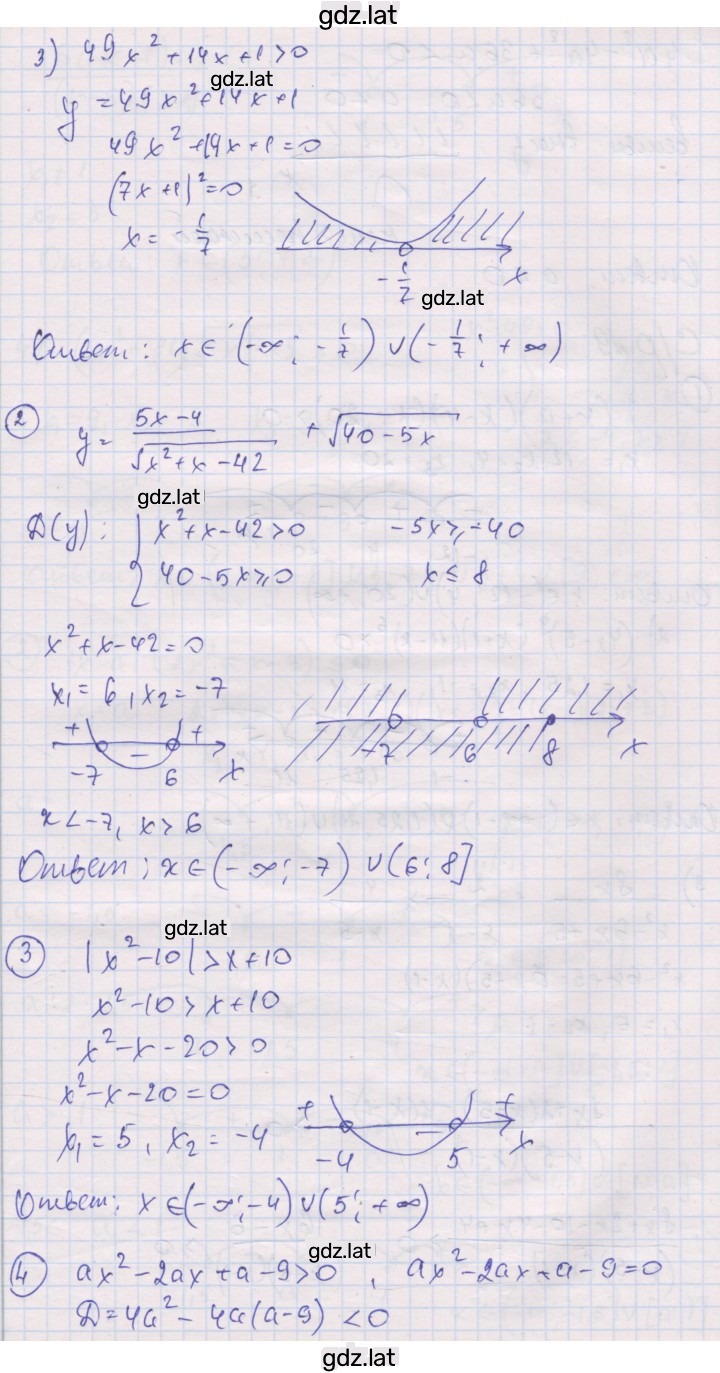 gdz.lat
3) 49x² + 14x + 1 > 0
gdz.lat
y = 49x² + 14x + 1
49x² + 14x + 1 = 0
(7x + 1)² = 0
x = - 1/7
- 1/7 x
gdz.lat
Ответ: x ∈ (-∞; - 1/7) ∪ (- 1/7; + ∞)
2 y = (5x - 4)/√(x² + x - 42) + √(40 - 5x)
gdz.lat
D(y): { x² + x - 42 > 0 -5x ⩾ -40
40 - 5x ⩾ 0 x ⩽ 8
x² + x - 42 = 0
x₁ = 6, x₂ = -7
+ - +
-7 6 x
-7 6 8 x
x < -7, x > 6
Ответ: x ∈ (-∞; -7) ∪ (6; 8]
gdz.lat
3 |x² - 10| > x + 10
x² - 10 > x + 10
x² - x - 20 > 0
x² - x - 20 = 0
x₁ = 5, x₂ = -4
+ - +
-4 5 x
Ответ: x ∈ (-∞; -4) ∪ (5; + ∞)
gdz.lat
4 ax² - 2ax + a - 9 > 0, ax² - 2ax + a - 9 = 0
D = 4a² - 4a(a - 9) < 0
gdz.lat